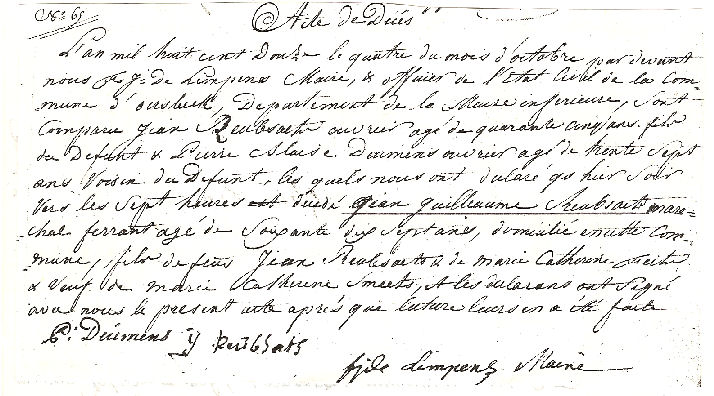 No 65
Acte de Décés
L'an mil huit cent Douze le quatre du mois d'octobre par devant
nous de Limpens Maire, & officier de l'Etat Civil de la Com-
mune d'oirsbeek, Departement de la Meuse inferieure, sont
Comparu Jean Reubsaets ouvrier agé de quarante cinq ans fils
du Defunt & Pierre Deumens ouvrier agé de trente sept
ans Voisin du Defunt, les quels nous ont declaré qu'hier Soir
vers les Sept heures est décédé Jean Guilleaume Reubsaets mare-
chal ferrant agé de Soixante dix Sept ans, domicilié en cette Com-
mune, fils de feus Jean Reubsaets & de marie Catherine
& veuf de marie Catherine Smeets, & les declarans ont Signé
avec nous le present acte après que lecture leur en a été faite
P. Deumens J
fj de Limpens Maire